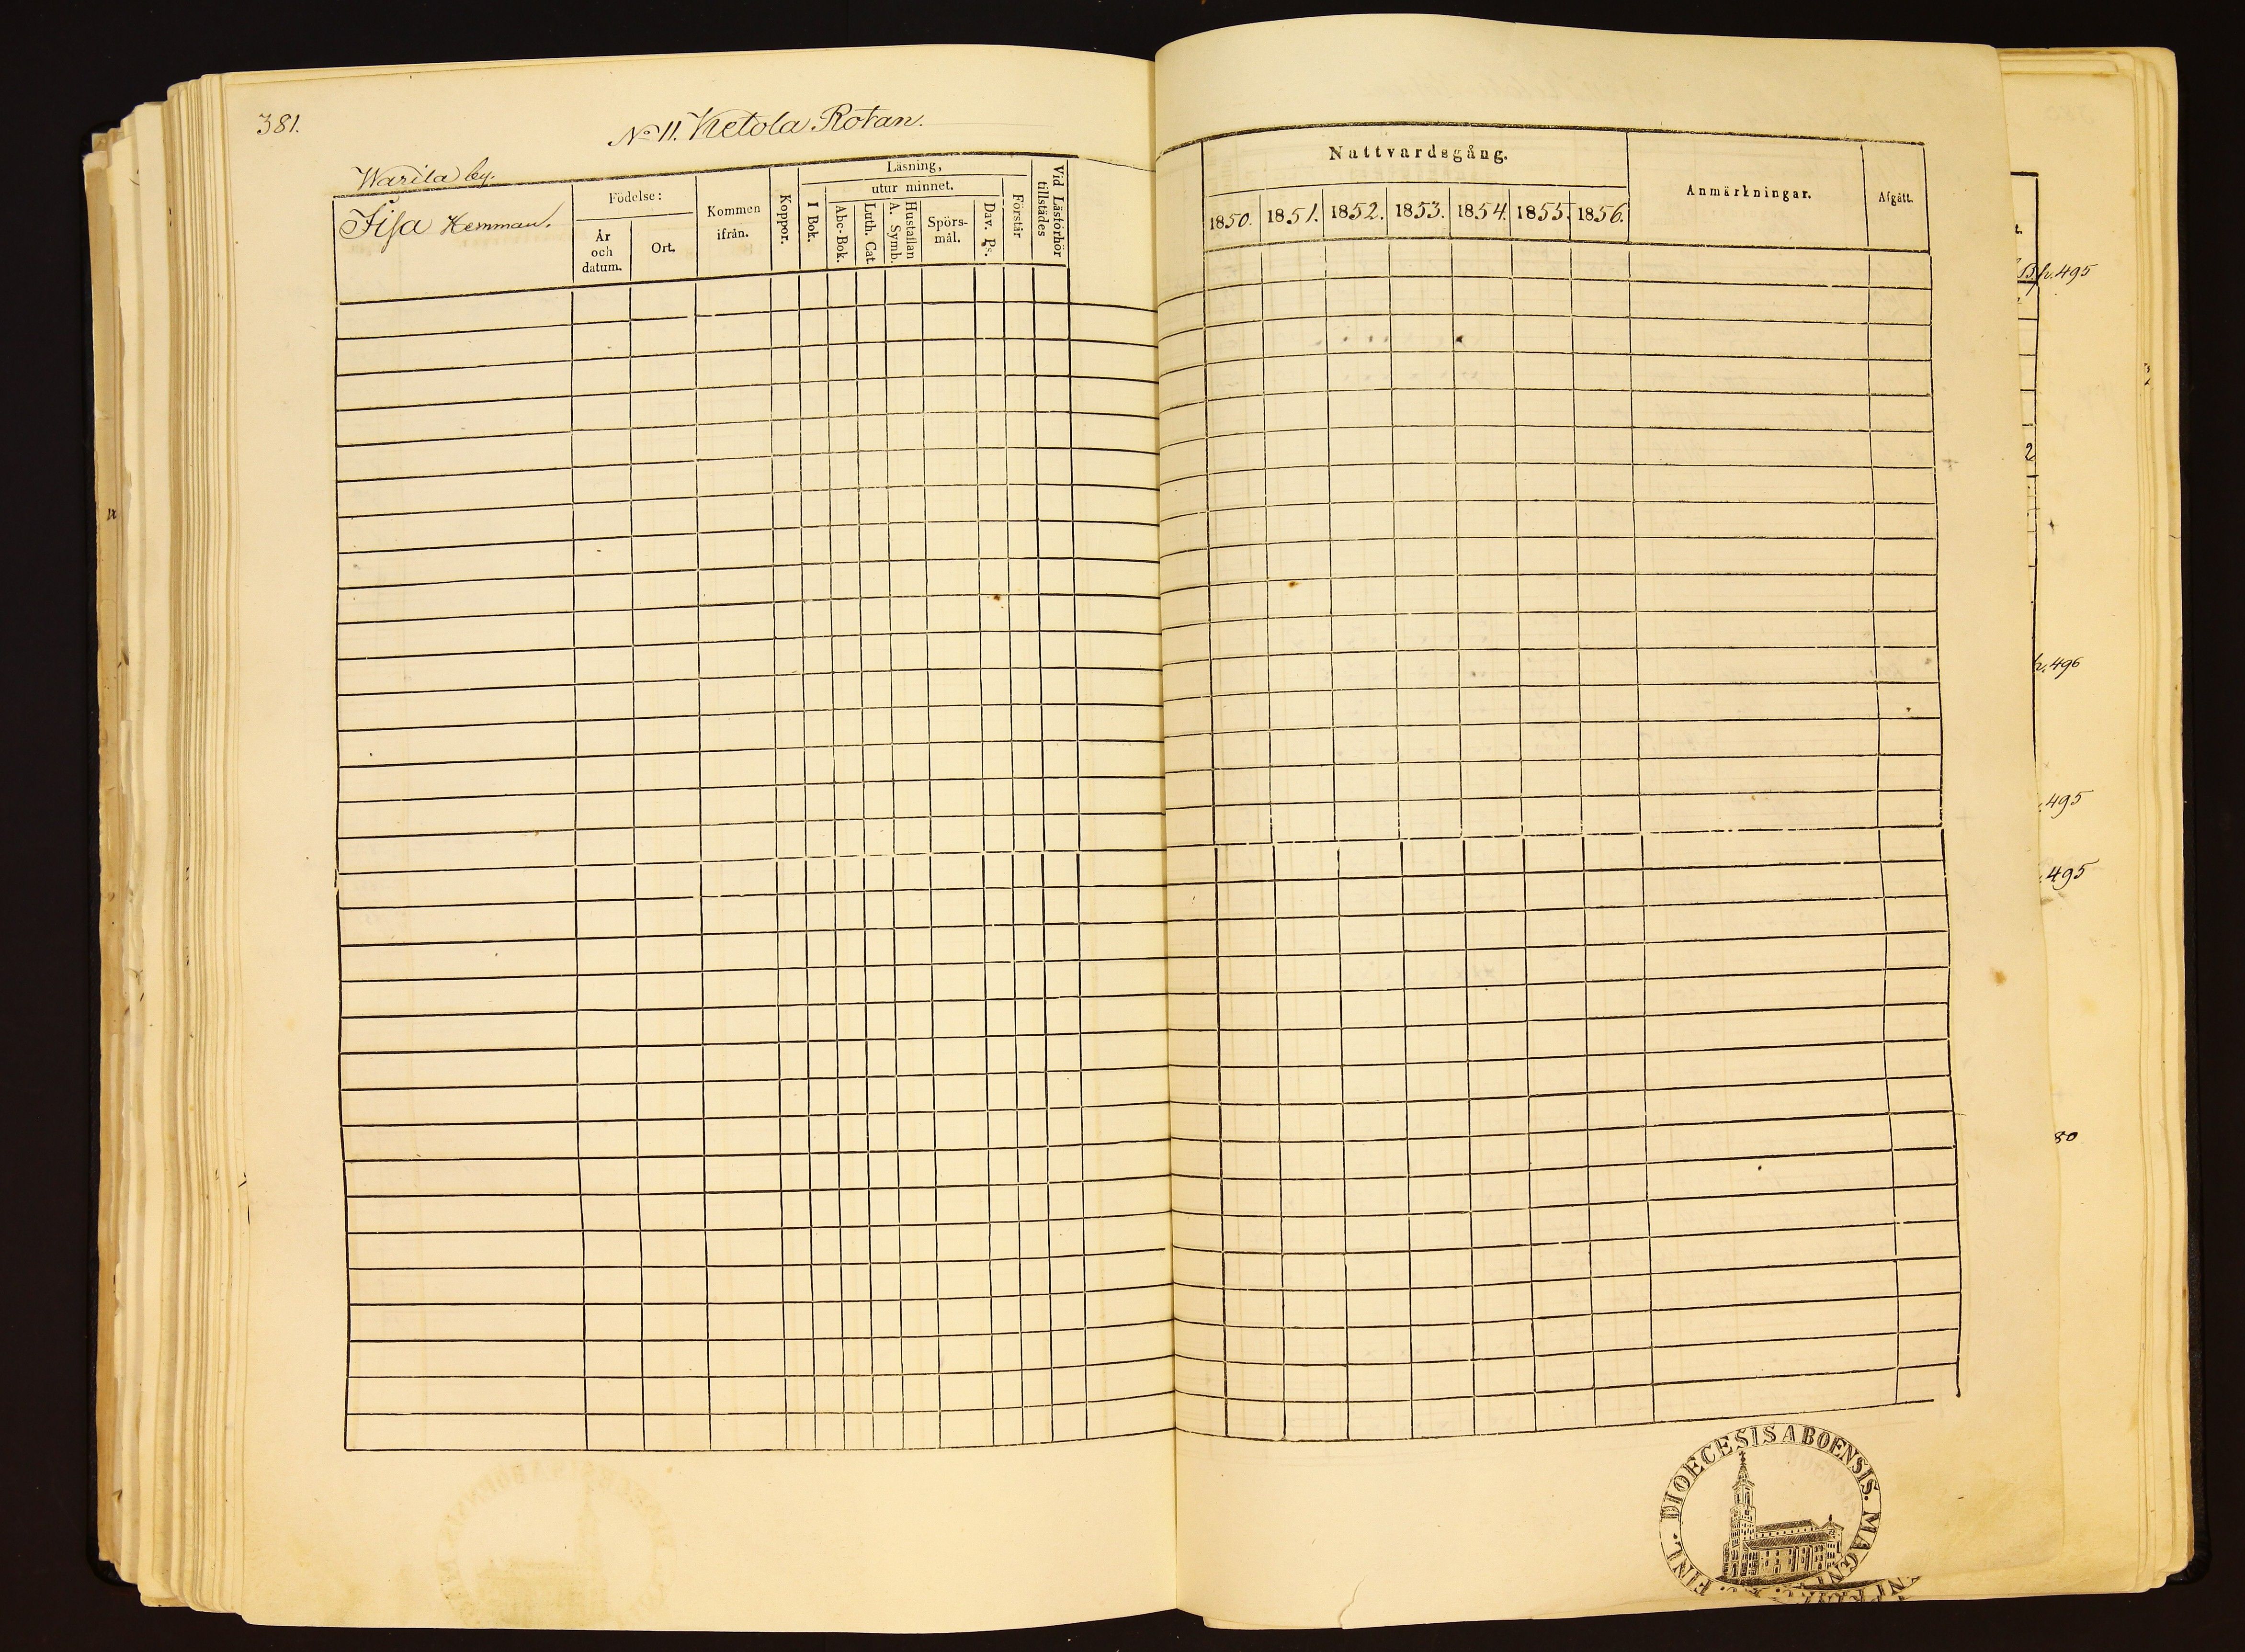 381.
No 11. Ketola Rotan.
Warila by.
Fisa Hemman.
Födelse:
År och datum.
Ort.
Kommen ifrån.
Koppor.
Läsning,
I Bok.
utur minnet.
Abc-Bok.
Luth. Cat.
A. Symb. Hustaflan
Spörs-mål.
Dav. Ps.
Förstår
Vid Läsförhör tillstädes
Nattvardsgång.
1850. 1851. 1852. 1853. 1854. 1855. 1856.
Anmärkningar.
Afgått.
p. 495
p. 496
495
495
80
FINL. DIOECESIS ABOENSIS. MAGNI